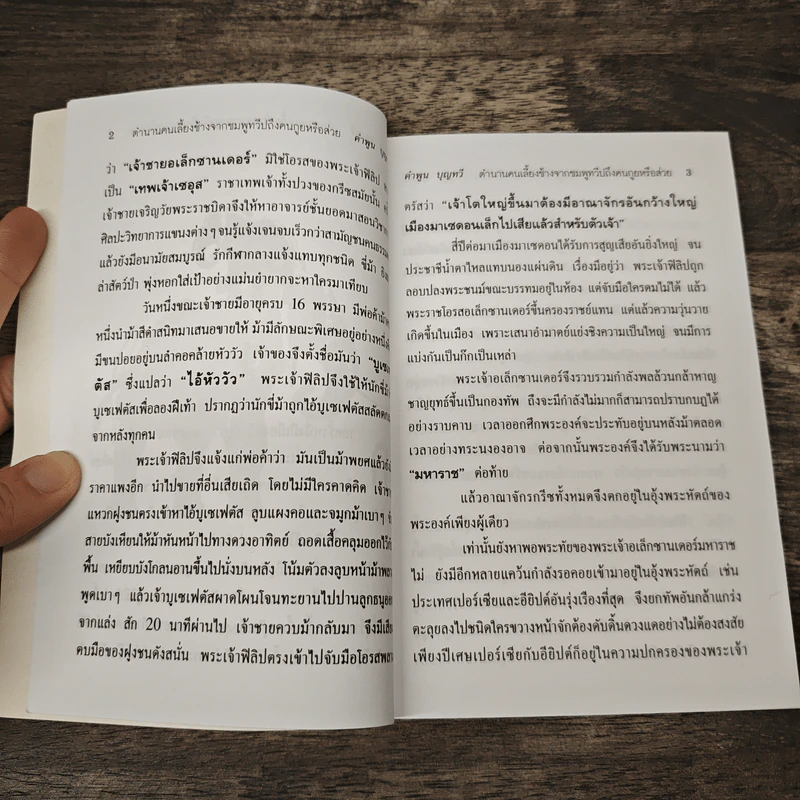 2 ตำนานคนเลี้ยงช้างจากชมพูทวีปถึงคนกูยหรือส่วย คำพูน
ว่า “เจ้าชายอเล็กซานเดอร์” มิใช่โอรสของพระเจ้าฟิลิป
เป็น “เทพเจ้าเซอุส” ราชาเทพเจ้าทั้งปวงของกรีซสมัยนั้น
เจ้าชายเจริญวัยพระราชบิดาจึงให้หาอาจารย์ชั้นยอดมาสอนวิชา
ศิลปะวิทยาการแขนงต่างๆ จนรู้แจ้งเจนจบเร็วกว่าสามัญชนคนธรรม
แล้วยังมีอนามัยสมบูรณ์ รักกีฬากลางแจ้งแทบทุกชนิด ขี่ม้า
ล่าสัตว์ป่า พุ่งหอกใส่เป้าอย่างแม่นยำยากจะหาใครมาเทียบ
วันหนึ่งขณะเจ้าชายมีอายุครบ 16 พรรษา มีพ่อค้าม้า
หนึ่งนำม้าสีดำสนิทมาเสนอขายให้ ม้ามีลักษณะพิเศษอยู่อย่างหนึ่ง
มีขนปอยอยู่บนลำคอคล้ายหัววัว เจ้าของจึงตั้งชื่อมันว่า “บูเซ
ตัส” ซึ่งแปลว่า “ไอ้หัววัว” พระเจ้าฟิลิปจึงใช้ให้นักขี่ม้า
บูเซเฟตัสเพื่อลองฝีเท้า ปรากฏว่านักขี่ม้าถูกไอ้บูเซเฟตัสสลัดตก
จากหลังทุกคน
พระเจ้าฟิลิปจึงแจ้งแก่พ่อค้าว่า มันเป็นม้าพยศแล้วยัง
ราคาแพงอีก นำไปขายที่อื่นเสียเถิด โดยไม่มีใครคาดคิด เจ้าชา
แหวกฝูงชนตรงเข้าหาไอ้บูเซเฟตัส ลูบแผงคอและจมูกม้าเบาๆ
สายบังเหียนให้ม้าหันหน้าไปทางดวงอาทิตย์ ถอดเสื้อคลุมออกไว้
พื้น เหยียบบังโกลนอานขึ้นไปนั่งบนหลัง โน้มตัวลงลูบหน้าม้าพลาง
พูดเบาๆ แล้วเจ้าบูเซเฟตัสผาดโผนโจนทะยานไปปานลูกธนูออก
จากแล่ง สัก 20 นาทีผ่านไป เจ้าชายควบม้ากลับมา จึงมีเสีย
ตบมือของฝูงชนดังสนั่น พระเจ้าฟิลิปตรงเข้าไปจับมือโอรสพลาง
คำพูน บุญทวี ตำนานคนเลี้ยงช้างจากชมพูทวีปถึงคนกูยหรือส่วย 3
ตรัสว่า “เจ้าโตใหญ่ขึ้นมาต้องมีอาณาจักรอันกว้างใหญ่
เมืองมาเซดอนเล็กไปเสียแล้วสำหรับตัวเจ้า”
สี่ปีต่อมาเมืองมาเซดอนได้รับการสูญเสียอันยิ่งใหญ่ จน
ประชาชีน้ำตาไหลแทบนองแผ่นดิน เรื่องมีอยู่ว่า พระเจ้าฟิลิปถูก
ลอบปลงพระชนม์ขณะบรรทมอยู่ในห้อง แต่จับมือใครดมไม่ได้ แล้ว
พระราชโอรสอเล็กซานเดอร์ขึ้นครองราชย์แทน แต่แล้วความวุ่นวาย
เกิดขึ้นในเมือง เพราะเสนาอำมาตย์แย่งชิงความเป็นใหญ่ จนมีการ
แบ่งกันเป็นก๊กเป็นเหล่า
พระเจ้าอเล็กซานเดอร์จึงรวบรวมกำลังพลล้วนกล้าหาญ
ชาญยุทธ์ขึ้นเป็นกองทัพ ถึงจะมีกำลังไม่มากก็สามารถปราบกบฏได้
อย่างราบคาบ เวลาออกศึกพระองค์จะประทับอยู่บนหลังม้าตลอด
เวลาอย่างทระนงองอาจ ต่อจากนั้นพระองค์จึงได้รับพระนามว่า
“มหาราช” ต่อท้าย
แล้วอาณาจักรกรีซทั้งหมดจึงตกอยู่ในอุ้งพระหัตถ์ของ
พระองค์เพียงผู้เดียว
เท่านั้นยังหาพอพระทัยของพระเจ้าอเล็กซานเดอร์มหาราช
ไม่ ยังมีอีกหลายแคว้นกำลังรอคอยเข้ามาอยู่ในอุ้งพระหัตถ์ เช่น
ประเทศเปอร์เซียและอียิปต์อันรุ่งเรืองที่สุด จึงยกทัพอันกล้าแกร่ง
ตะลุยลงไปชนิดใครขวางหน้าจักต้องดับดิ้นดวงแดอย่างไม่ต้องสงสัย
เพียงปีเศษเปอร์เซียกับอียิปต์ก็อยู่ในความปกครองของพระเจ้า